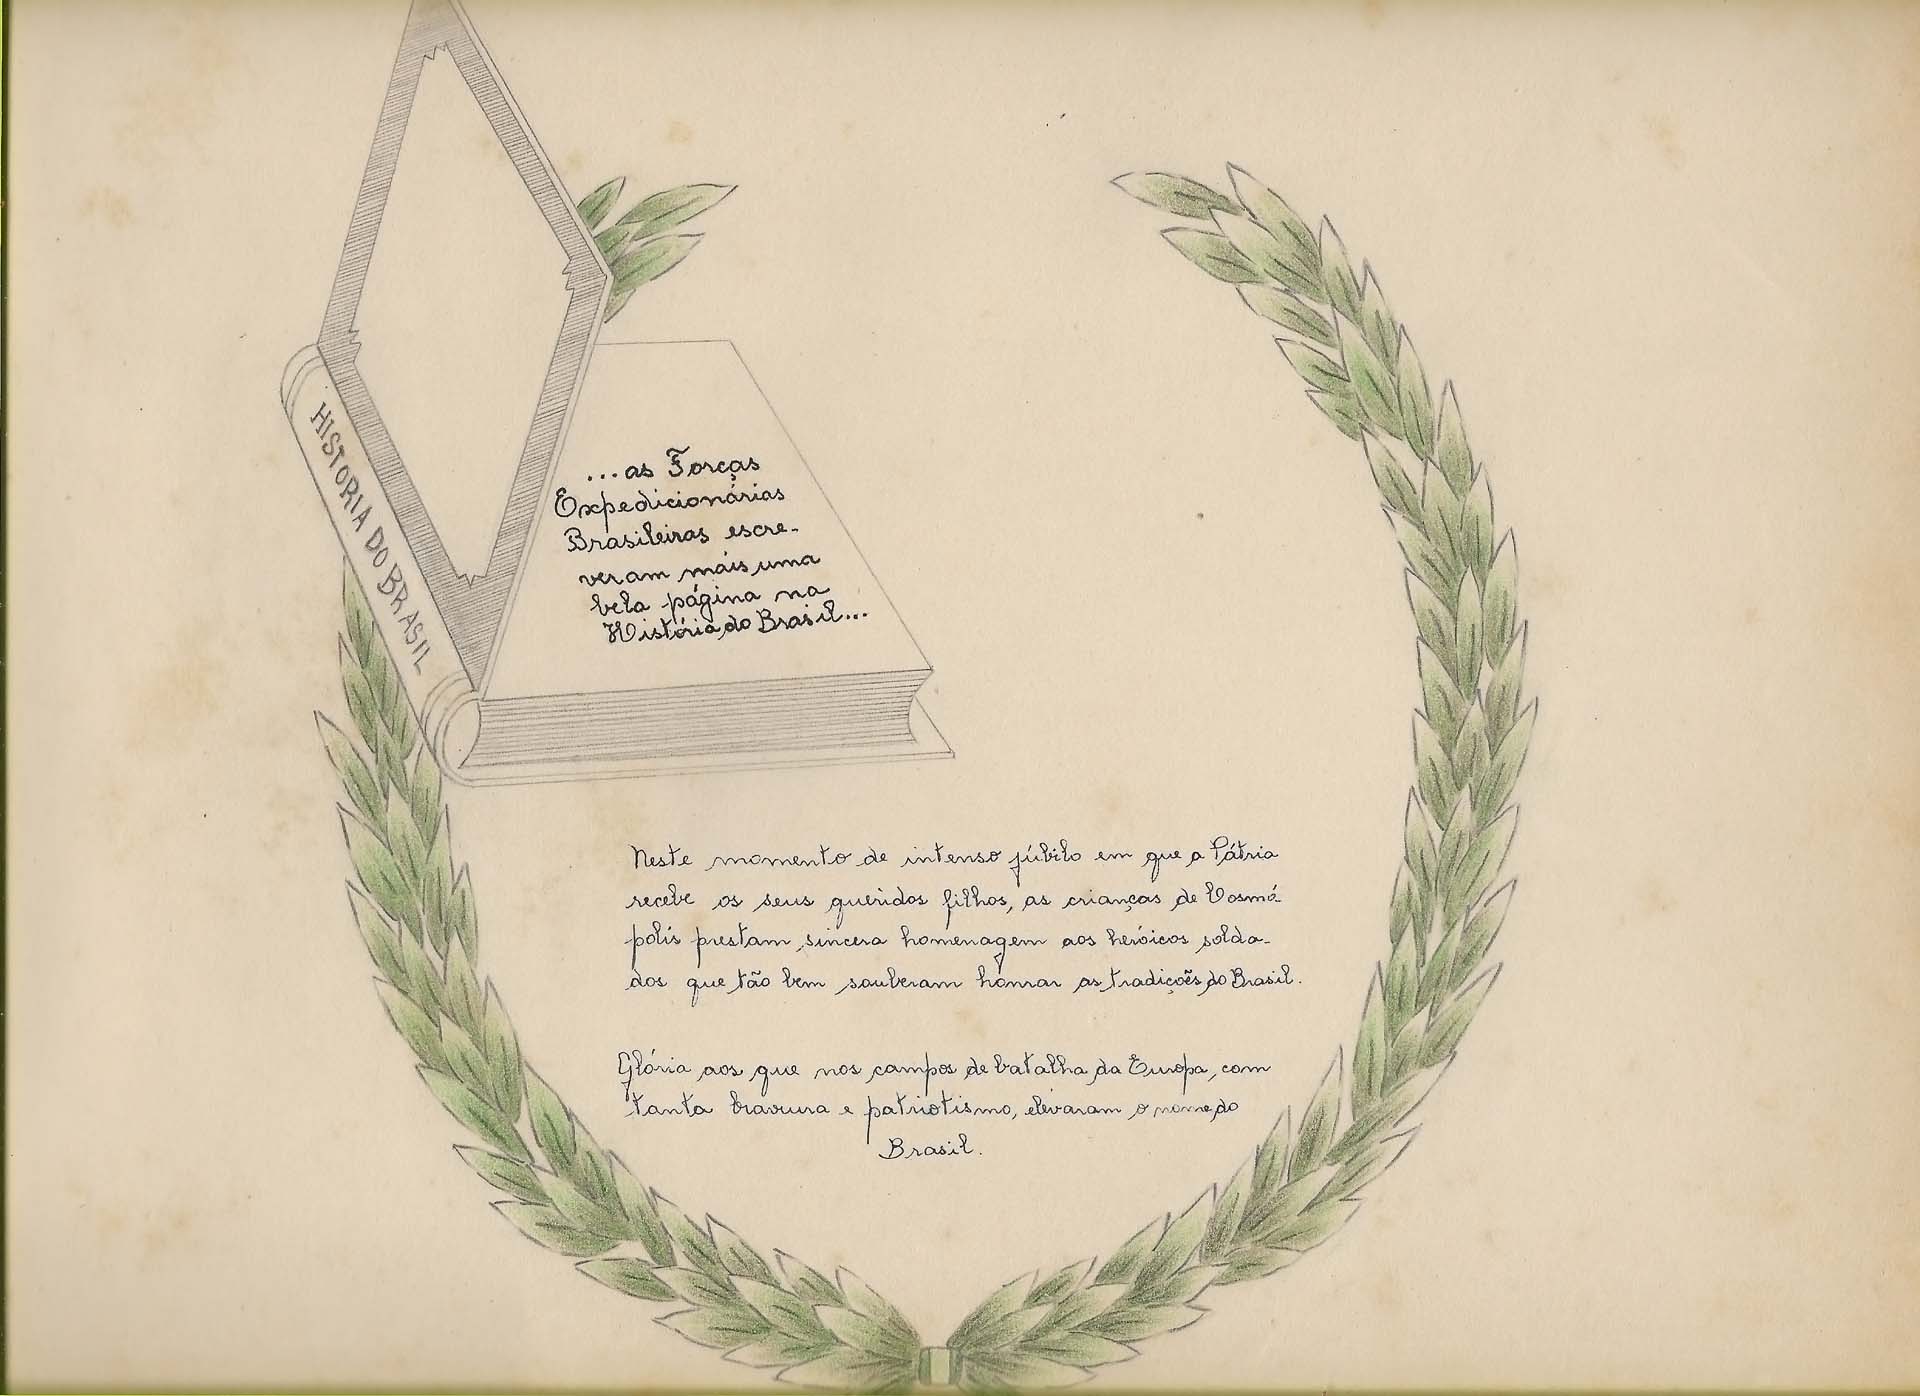 HISTORIA DO BRASIL
...as Forças
Expedicionárias
Brasileiras escre-
veram máis uma
bela página na
História do Brasil...
Neste momento de intenso júbilo em que a Pátria
recebe os seus queridos filhos, as crianças de Cosmó-
polis prestam sincera homenagem aos heróicos solda-
dos que tão bem souberam honrar as tradições do Brasil.
Glória aos que nos campos de batalha da Europa, com
tanta bravura e patriotismo, elevaram o nome do
Brasil.